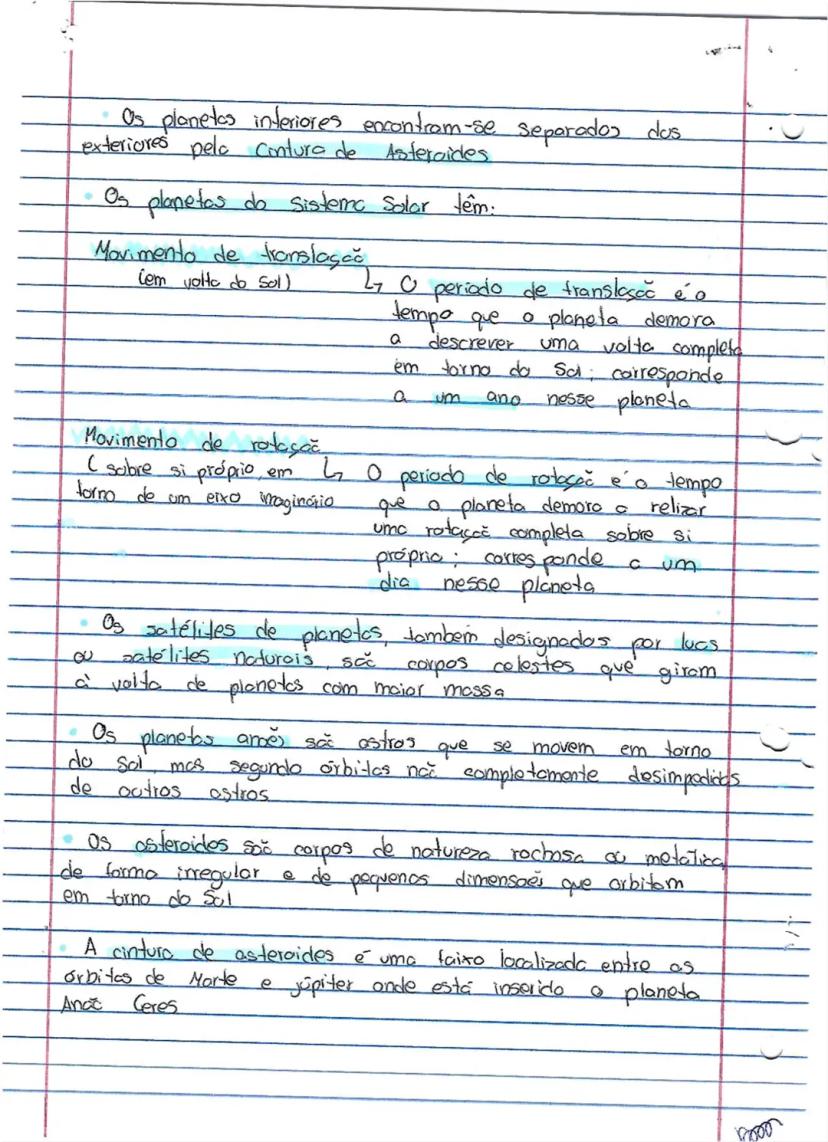 • Os planetas interiores encontram-se separados dos
exteriores pela Cintura de Asteroides
• Os planetas do Sistema Solar têm:
Movimento de translação
(em volta do Sol)
↳ O periodo de translação é o
tempo que o planeta demora
a descrever uma volta completa
em torno do Sol; corresponde
a um ano nesse planeta
Movimento de rotação
(sobre si próprio, em
torno de um eixo imaginário
↳ O periodo de rotação é o tempo
que o planeta demora a relizar
uma rotação completa sobre si
próprio; corresponde a um
dia nesse planeta
• Os satélites de planetas, tambem designados por luas
ou satélites naturais, são corpos celestes que giram
à volta de planetas com maior massa
• Os planetas anões são astros que se movem em torno
do Sol, mas segundo órbitas não completamente desimpedidas
de outros astros
• Os asteroides são corpos de natureza rochosa ou metálica,
de forma irregular e de pequenas dimensões que orbitam
em torno do Sol
• A cintura de asteroides é uma faixa localizada entre as
órbitas de Marte e júpiter onde está inserido o planeta
Anão Ceres